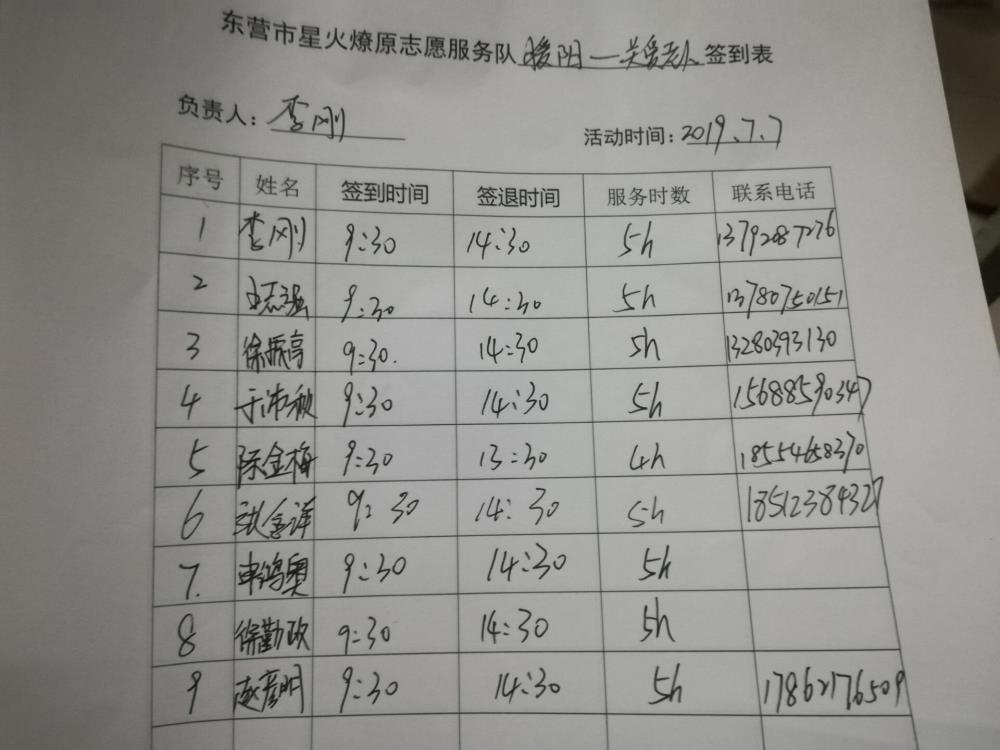 东营市星火燎原志愿服务队 暖阳—关爱老人 签到表
负责人：李刚 活动时间：2019.7.7
序号 姓名 签到时间 签退时间 服务时数 联系电话
1 李刚 9:30 14:30 5h 13792087276
2 志强 9:30 14:30 5h 13780750151
3 徐振亭 9:30. 14:30 5h 13280393130
4 于沛秋 9:30 14:30 5h 15688590347
5 陈金梅 9:30 13:30 4h 18554658370
6 9:30 14:30 5h 18512384327
7. 9:30 14:30 5h
8 徐勤政 9:30 14:30 5h
9 赵彦明 9:30 14:30 5h 17862176509